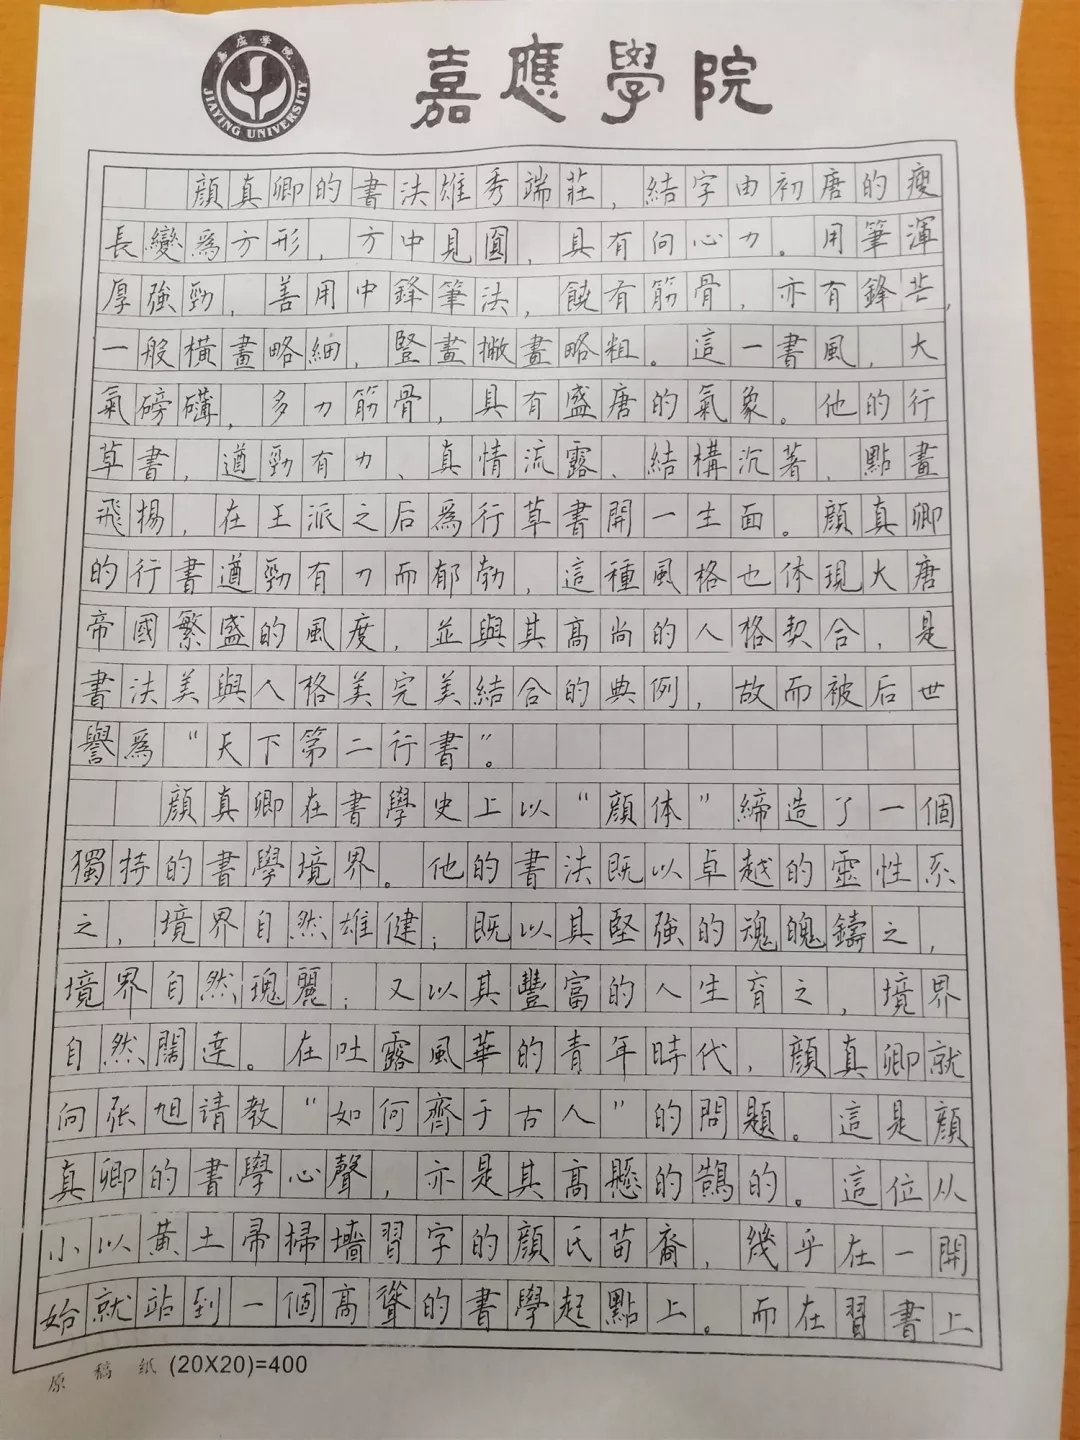 嘉應學院
JIAYING UNIVERSITY
嘉應學院
顔真卿的書法雄秀端莊，結字由初唐的瘦
長變爲方形，方中見圓，具有向心力。用筆渾
厚強勁，善用中鋒筆法，饒有筋骨，亦有鋒芒，
一般橫畫略細，豎畫撇畫略粗。這一書風，大
氣磅礴，多力筋骨，具有盛唐的氣象。他的行
草書，遒勁有力、真情流露、結構沉著，點畫
飛揚，在王派之后爲行草書開一生面。顔真卿
的行書遒勁有力而郁勃，這種風格也体現大唐
帝國繁盛的風度，並與其高尚的人格契合，是
書法美與人格美完美結合的典例，故而被后世
譽爲“天下第二行書”。
顔真卿在書學史上以“顔体”締造了一個
獨持的書學境界。他的書法既以卓越的靈性系
之，境界自然雄健；既以其堅強的魂魄鑄之，
境界自然瑰麗；又以其豐富的人生育之，境界
自然闊達。在吐露風華的青年時代，顔真卿就
向张旭請教“如何齊于古人”的問題。這是顔
真卿的書學心聲，亦是其高懸的鵠的。這位从
小以黄土帚掃墻習字的顔氏苗裔，幾乎在一開
始就站到一個高聳的書學起點上。而在習書上
原稿紙(20X20)=400